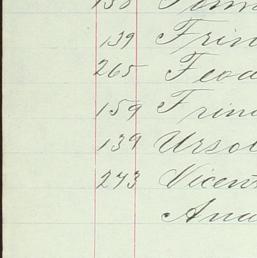 139 Trin
265 Feod
159 Trin
139 Urso
243 Vicent